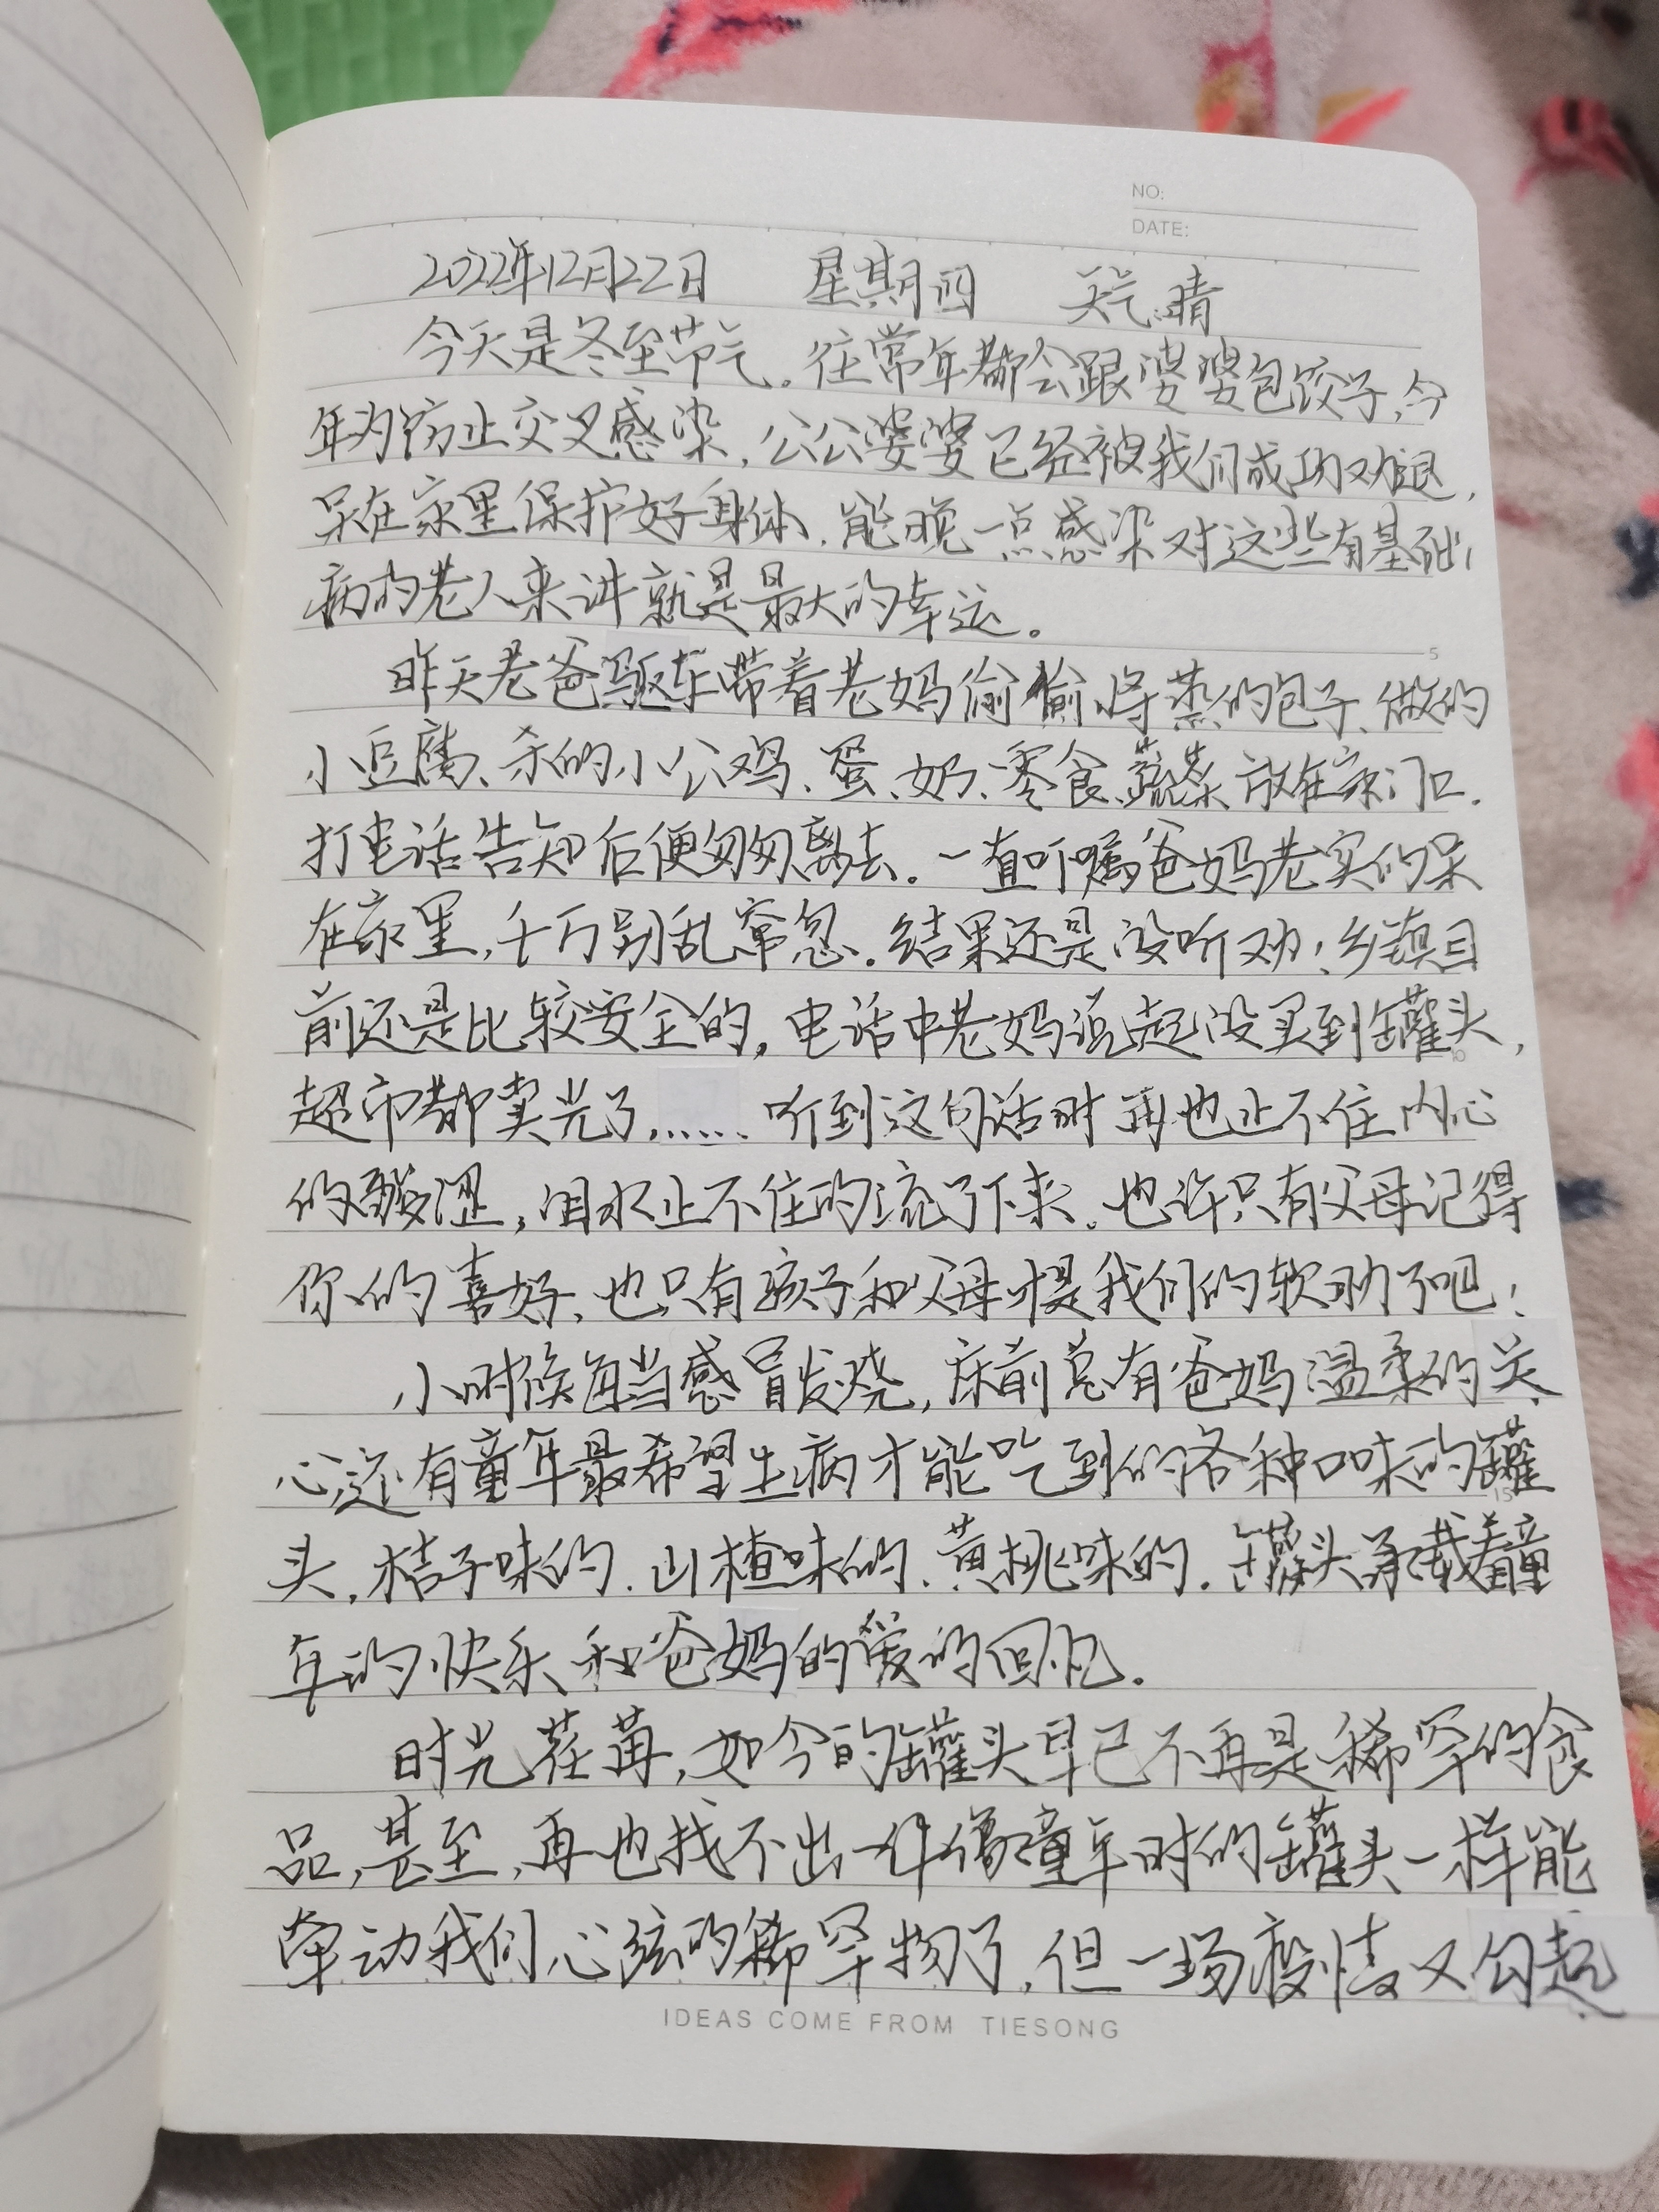 NO:
DATE:
2022年12月22日 星期四 天气:晴
今天是冬至节气。往常年都会跟婆婆包饺子,今
年为防止交叉感染,公公婆婆已经被我们成功劝退,
呆在家里保护好身体,能晚一点感染对这些有基础
病的老人来讲就是最大的幸运。
5
昨天老爸驱车带着老妈偷偷将蒸的包子、做的
小豆腐、杀的小公鸡、蛋、奶、零食、蔬菜放在家门口.
打电话告知后便匆匆离去。一直叮嘱爸妈老实的呆
在家里,千万别乱窜忽.结果还是没听劝!乡镇目
前还是比较安全的,电话中老妈说起没买到罐头,
10
超市都卖光了...... 听到这句话时再也止不住内心
的酸涩,泪水止不住的流了下来。也许只有父母记得
你的喜好,也只有孩子和父母才是我们的软肋了吧!
小时候每当感冒发烧,床前总有爸妈温柔的关
心,还有童年最希望生病才能吃到的各种口味的罐
15
头,桔子味的.山楂味的、黄桃味的.罐头承载着童
年的快乐和爸妈的爱的回忆.
时光荏苒,如今的罐头早已不再是稀罕的食
品,甚至,再也找不出一件像童年时的罐头一样能
牵动我们心弦的稀罕物了,但一场疫情又勾起
IDEAS COME FROM TIESONG